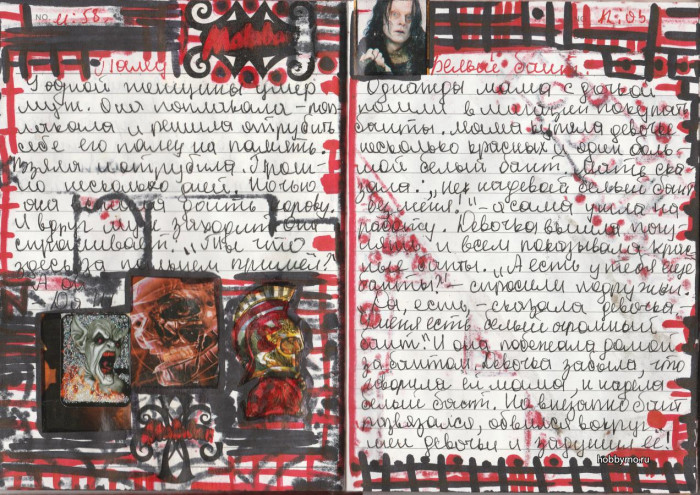 NO. 11:58
Палец
Malubar
У одной женщины умер
муж. Она поплакала-поп-
лакала и решила отрубить
себе его палец на память.
Взяла и отрубила. Прош-
ло несколько дней. Ночью
она пошла доить корову.
И вдруг муж заходит. Она
спрашивает: "Ты что
за пальцем пришёл?"
А он
Да
NO. 12:05
Белый бант
Однажды мама с дочкой
пошли в магазин покупать
банты. Мама купила девочке
несколько красных и один боль-
шой белый бант. Мать ска-
зала: "не надевай белый бант
без меня!" - а сама ушла на
работу. Девочка вышла погу-
лять и всем показывала крас-
ные банты. "А есть у тебя ещё
банты?" - спросили подружки.
"Да, есть, - сказала девочка,
у меня есть белый огромный
бант." И она побежала домой
за бантом. Девочка забыла, что
говорила ей мама, и надела
белый бант. Но внезапно бант
развязался, обвился вокруг
шеи девочки и задушил её!
hobbymo.ru